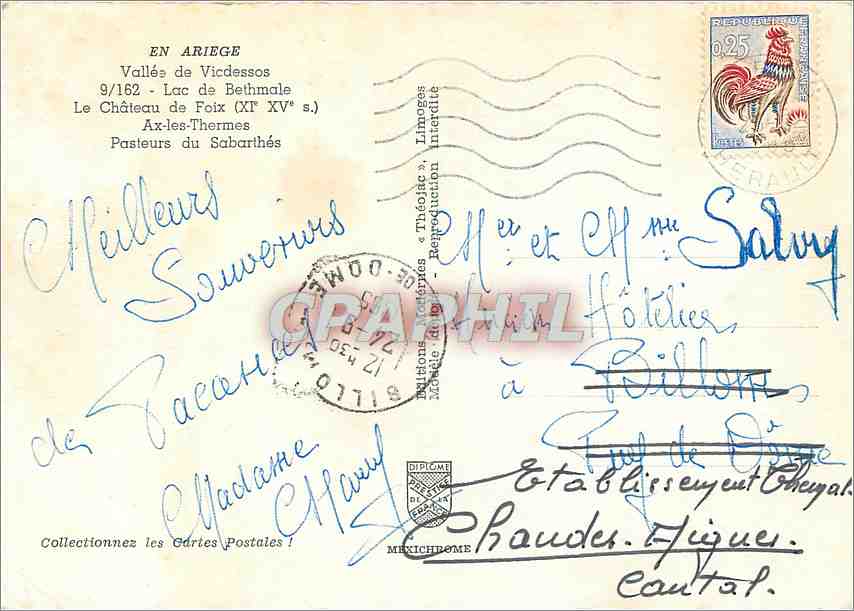 EN ARIEGE
Vallée de Vicdessos
9/162 - Lac de Bethmale
Le Château de Foix (XIe XVe s.)
Ax-les-Thermes
Pasteurs du Sabarthés
Meilleurs
Souvenirs
de Vacances
Madame
Collectionnez les Cartes Postales !
Editions Modernes « Théojac », Limoges
Modèle déposé - Reproduction Interdite
DIPLOME
PRESTIGE
DE LA
FRANCE
MEXICHROME
REPUBLIQUE
FRANÇAISE
0,25
POSTES
HERAULT
BILLOM
DE-DOME
12 h30
24-8
CPARHIL
Mr et Mme Salvy
Ancien Hôtelier
à Billom
Puy de Dôme
Etablissement Thermal
Chaudes-Aigues.
Cantal.